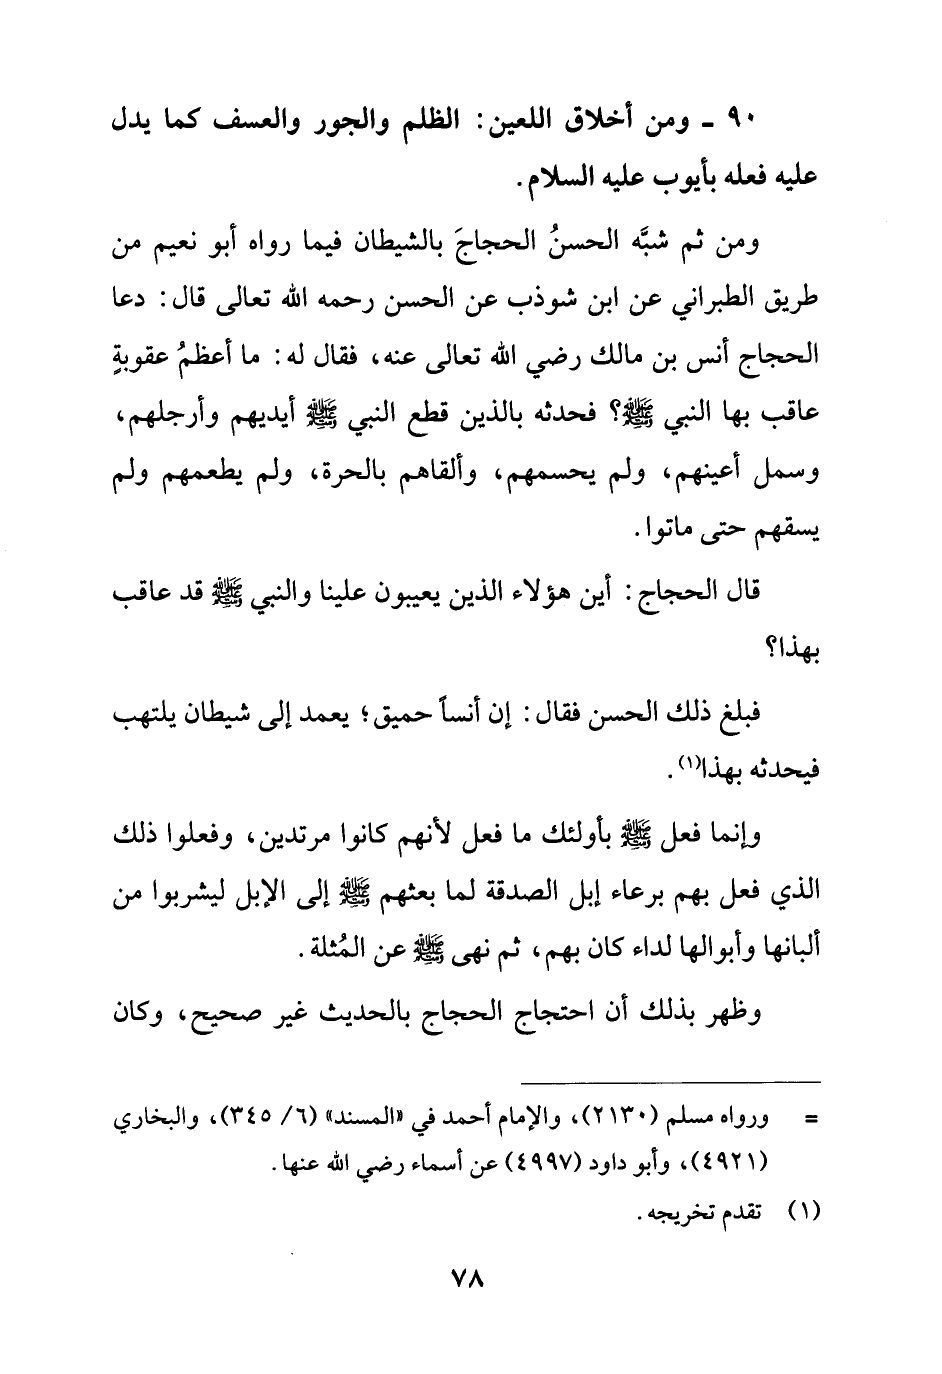 ٩٠ ـ ومن أخلاق اللعين: الظلم والجور والعسف كما يدل
عليه فعله بأيوب عليه السلام.
ومن ثم شبَّه الحسنُ الحجاجَ بالشيطان فيما رواه أبو نعيم من
طريق الطبراني عن ابن شوذب عن الحسن رحمه الله تعالى قال: دعا
الحجاج أنس بن مالك رضي الله تعالى عنه، فقال له: ما أعظمُ عقوبةٍ
عاقب بها النبي ﷺ؟ فحدثه بالذين قطع النبي ﷺ أيديهم وأرجلهم،
وسمل أعينهم، ولم يحسمهم، وألقاهم بالحرة، ولم يطعمهم ولم
يسقهم حتى ماتوا.
قال الحجاج: أين هؤلاء الذين يعيبون علينا والنبي ﷺ قد عاقب
بهذا؟
فبلغ ذلك الحسن فقال: إن أنساً حميق؛ يعمد إلى شيطان يلتهب
فيحدثه بهذا(١).
وإنما فعل ﷺ بأولئك ما فعل لأنهم كانوا مرتدين، وفعلوا ذلك
الذي فعل بهم برعاء إبل الصدقة لما بعثهم ﷺ إلى الإبل ليشربوا من
ألبانها وأبوالها لداء كان بهم، ثم نهى ﷺ عن المُثلة.
وظهر بذلك أن احتجاج الحجاج بالحديث غير صحيح، وكان
= ورواه مسلم (٢١٣٠)، والإمام أحمد في «المسند» (٦/ ٣٤٥)، والبخاري
(٤٩٢١)، وأبو داود (٤٩٩٧) عن أسماء رضي الله عنها.
(١) تقدم تخريجه.
٧٨